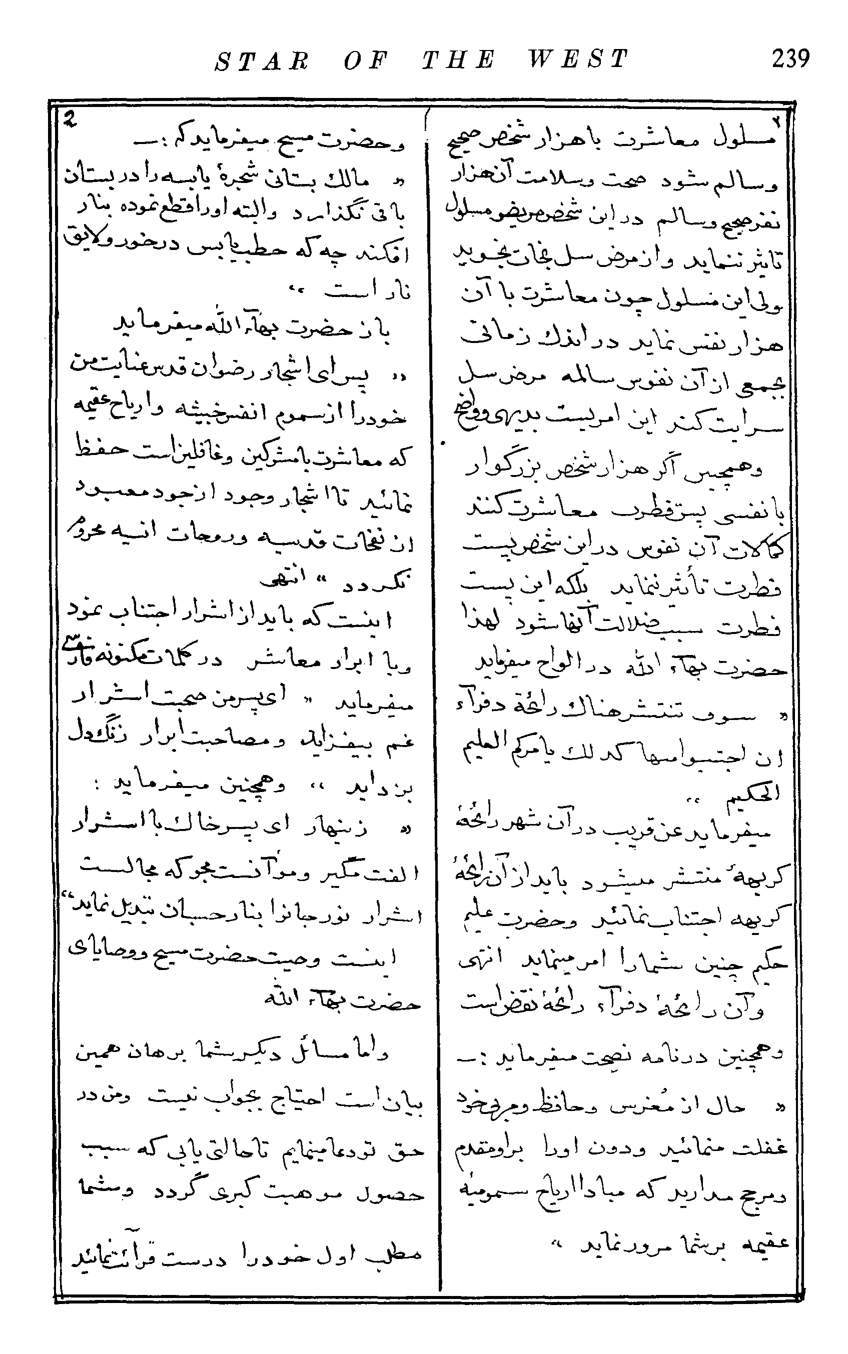 STAR OF THE WEST 239
۲
مسلول معاشرت با هزار شخص صحیح
وسالم شود صحت وسلامت آن هزار
نفر صحیح وسالم در این شخص مریض و مسلول
تاثیر ننماید و از مرض سل نجات نجوید
ولی این مسلول چون معاشرت با آن
هزار نفس نماید در اندک زمانی
بجمعی از آن نفوس سالمه مرض سل
سرایت کند این امریست بدیهی و واضح
وهمچنین اگر هزار شخص بزرگوار
با نفسی پست فطرت معاشرت کنند
کمالات آن نفوس در این شخص پست
فطرت تأثیر ننماید بلکه این پست
فطرت سبب ضلالت آنها شود لهذا
حضرت بهاء الله در الواح میفرماید
« سوف تنتشر هناك رائحة دفرآء
ان اجتنبوا منها كذلك يامركم العليم
الحکیم »
میفرماید عن قریب در آن شهر رائحۀ
کریهۀ منتشر میشود باید از آن رائحۀ
کریهه اجتناب نمائید وحضرت علیم
حکیم چنین شمارا امر مینماید انتهی
وآن رائحۀ دفرآء رائحۀ نقض است
وهمچنین در نامه نصیحت میفرماید :ـ
« حال از مغرس وحافظ ومربی خود
غفلت منمائید ودون اورا براو مقدم
ومرجح مدارید که مبادا اریاح سمومیۀ
عقیمه برشما مرور نماید »
2
وحضرت مسیح میفرماید که :ـ
« مالك بستانی شجرۀ یابسه را در بستان
باقی نگذارد والبته اورا قطع نموده بنار
افکند چه که حطب یابس درخور ولایق
نار است »
باز حضرت بهآء الله میفرماید
« پس ای اشجار رضوان قدس عنایت من
خودرا از سموم انفس خبیثه واریاح عقیمه
که معاشرت با مشرکین وغافلین است حفظ
نمائید تا اشجار وجود از جود معبود
از نفحات قدسیه وروحات انسیه محروم
نگردد » انتهی
اینست که باید از اشرار اجتناب نمود
وبا ابرار معاشر در کلمات مکنونه فارسی
میفرماید « ای پسر من صحبت اشرار
غم بیفزاید ومصاحبت ابرار زنگ دل
بزداید » وهمچنین میفرماید :
« زینهار ای پسر خاك با اشرار
الفت مگیر ومؤآنست مجو که مجالست
اشرار نور جانرا بنار حسبان تبدیل نماید »
اینست وصیت حضرت مسیح ووصایای
حضرت بهاء الله
واما مسائل دیگر شما برهان همین
بیان است احتیاج بجواب نیست ومن در
حق تو دعا مینمایم تا حالتی یابی که سبب
حصول موهبت کبری گردد وشما
مطلب اول خودرا درست قرآئت نمائید